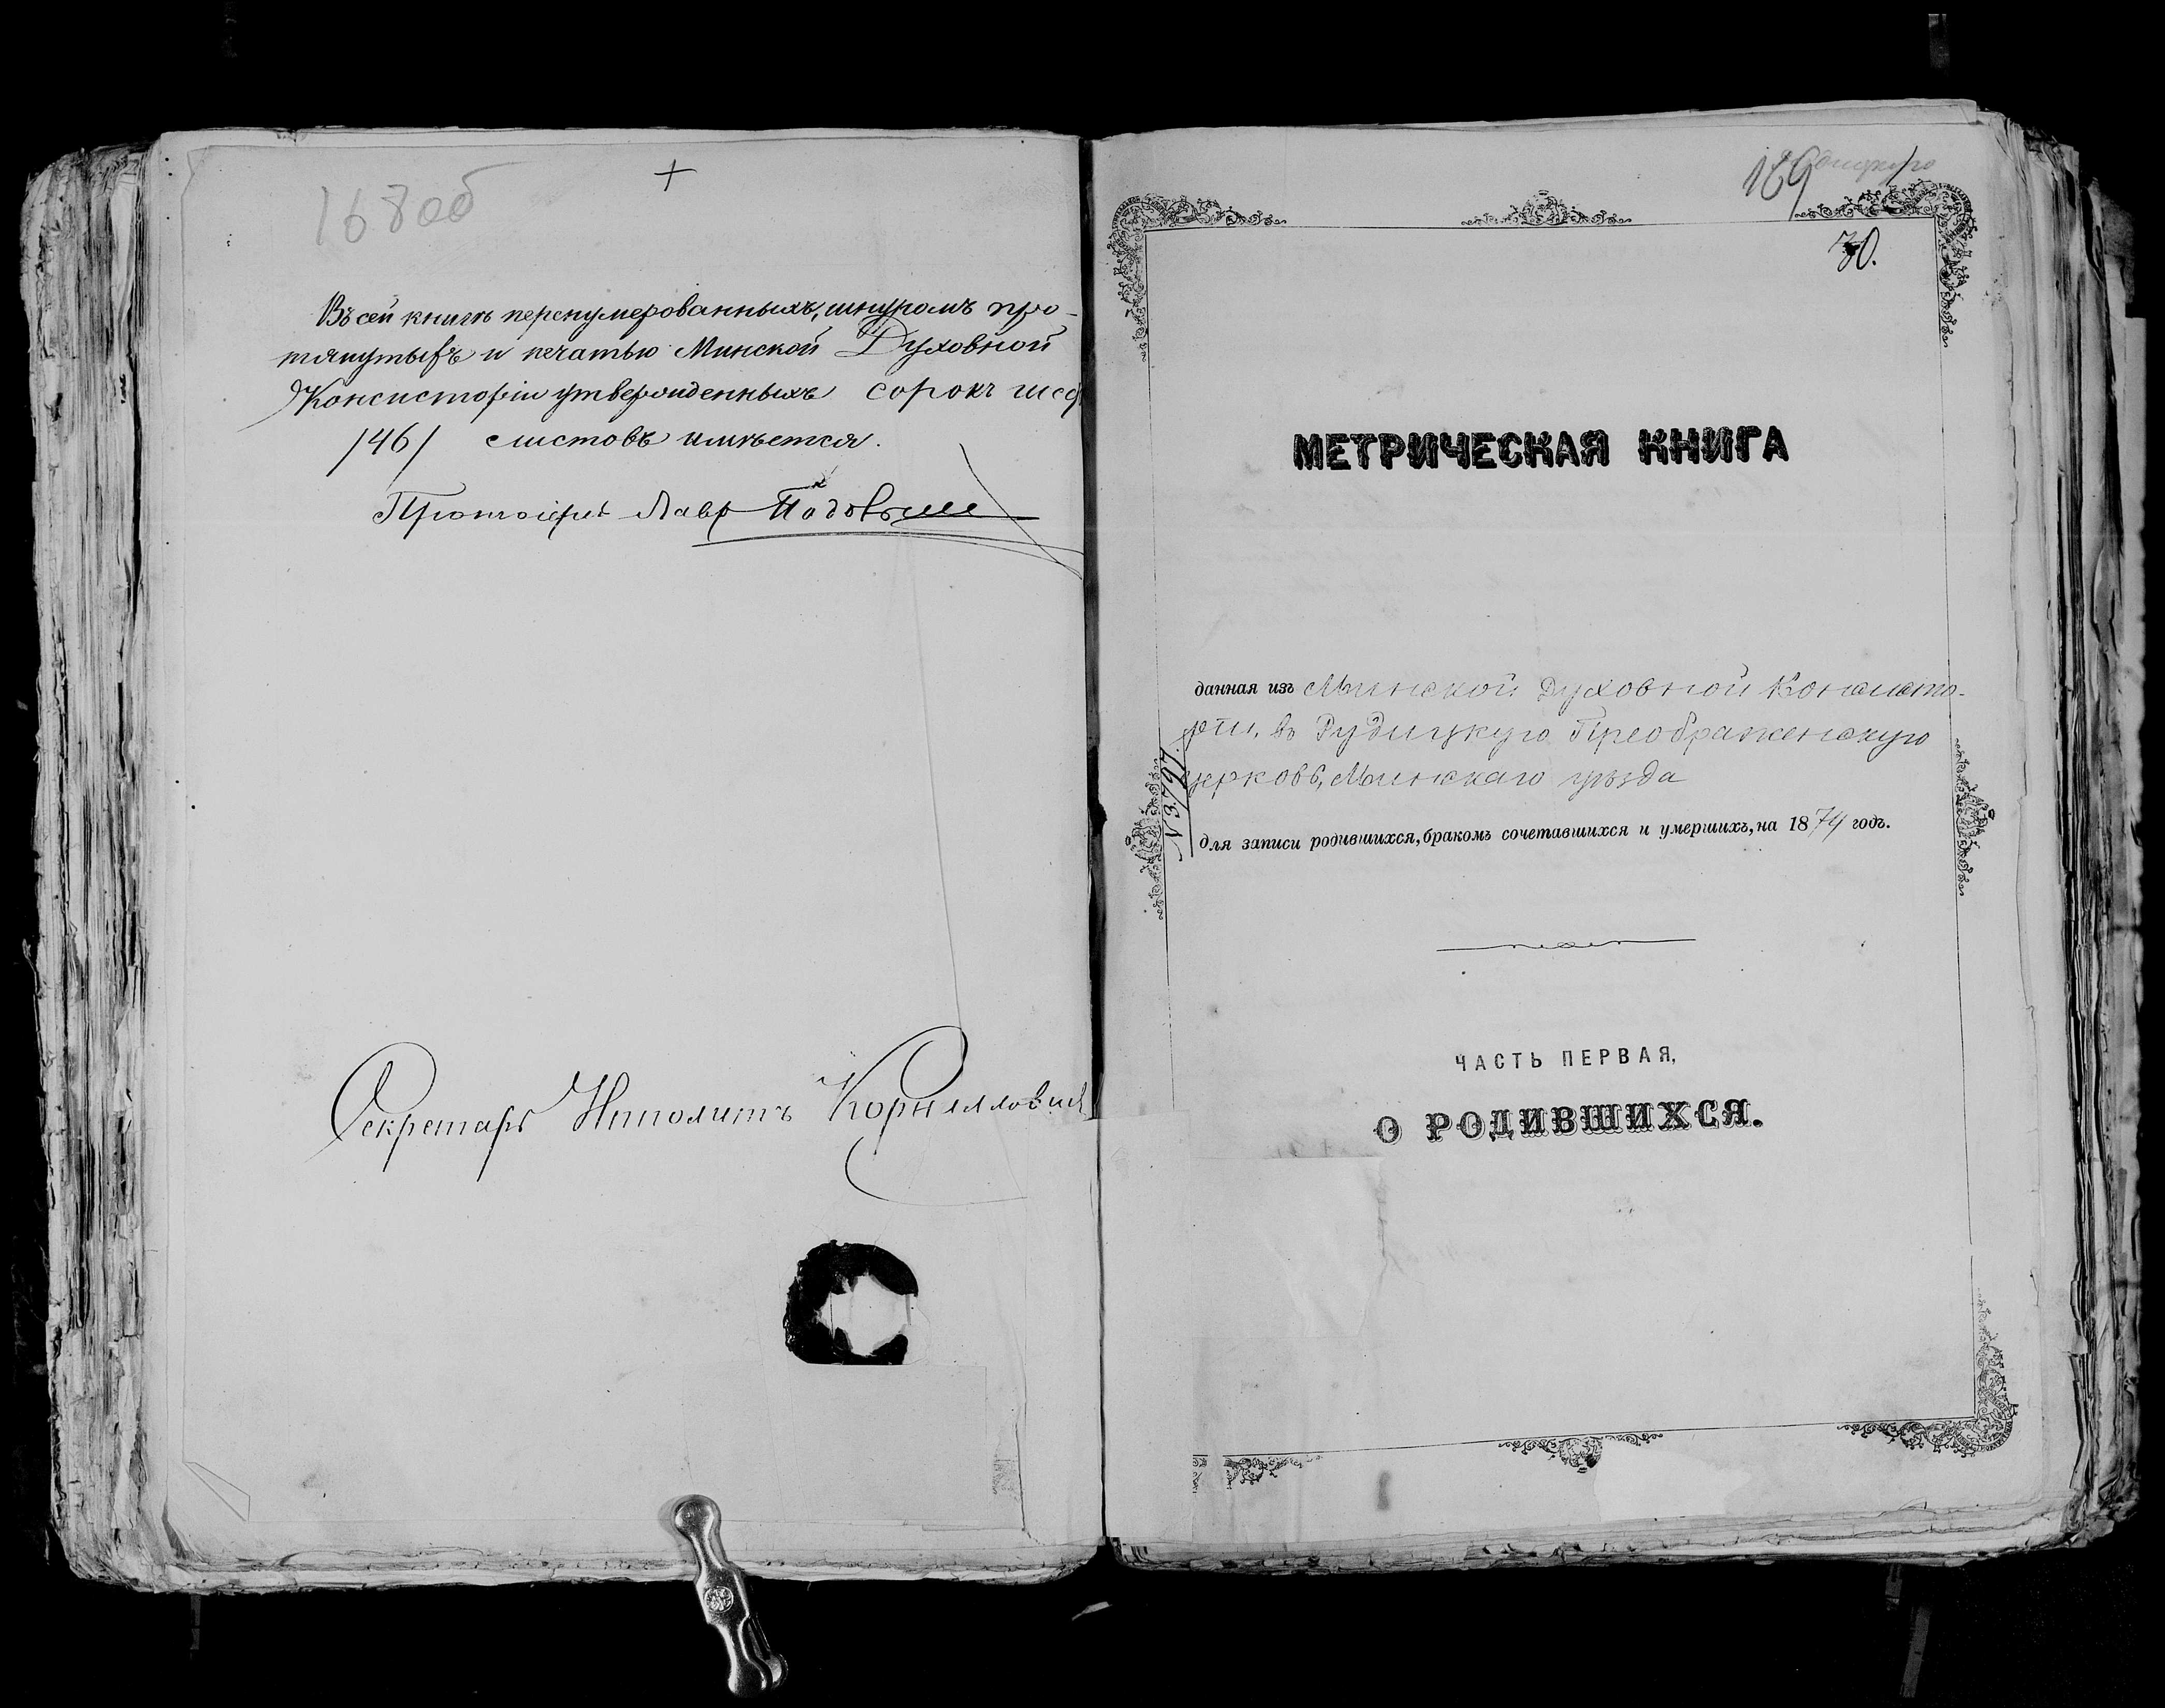 168об
+
Въ сей книгѣ перенумерованныхъ, шнуромъ про-
тянутыхъ и печатью Минской Духовной
Консисторіи утвержденныхъ сорокъ шес
/46/ листовъ имѣется.
Протоіерей Лавръ
Секретарь Ипполитъ Корнилловичъ
169
30.
МЕТРИЧЕСКАЯ КНИГА
данная изъ Минской Духовной Консисто-
ріи, въ Рудицкую Преображенскую
церковь, Минскаго уѣзда
№ 3,797.
для записи родившихся, бракомъ сочетавшихся и умершихъ, на 1874 годъ.
ЧАСТЬ ПЕРВАЯ,
О РОДИВШИХСЯ.